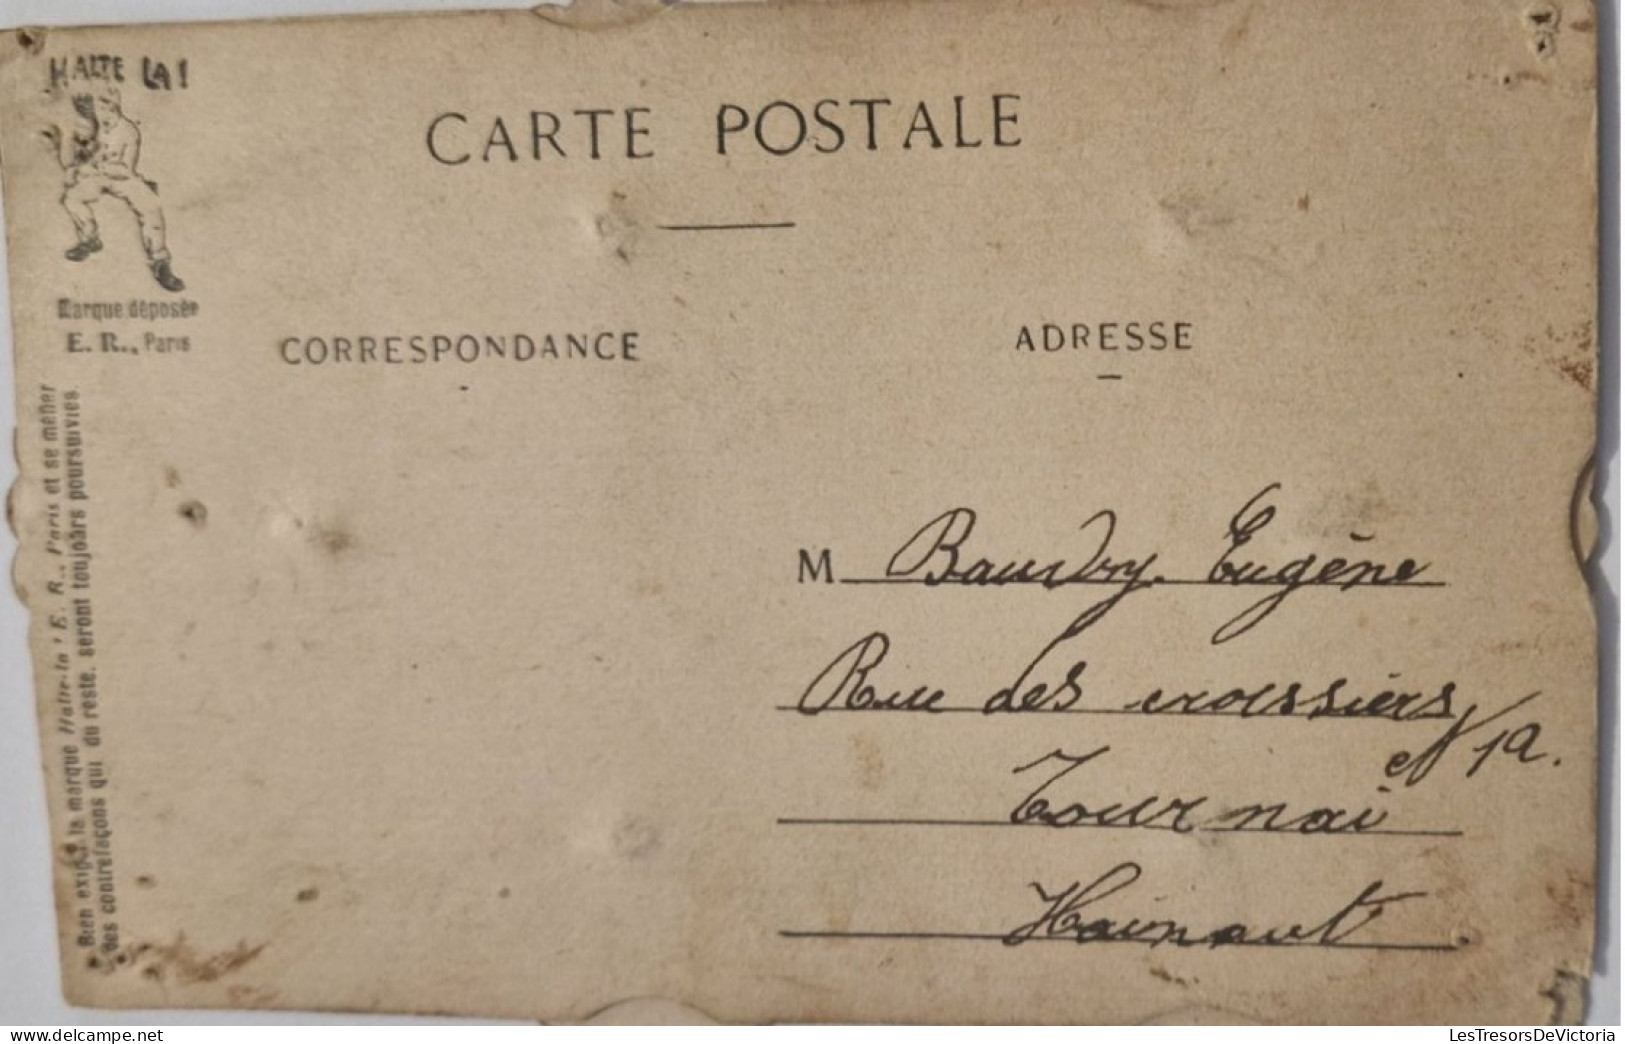 HALTE LA !
CARTE POSTALE
Marque déposée
E. R., Paris
CORRESPONDANCE
ADRESSE
Bien exiger la marque Halte-la ! E. R., Paris et se méfier
des contrefaçons qui du reste. seront toujours poursuivies
M Baudry. Eugène
Rue des croissiers
N 12.
Tournai
Hainaut
delcampe.net
LesTresorsDeVictoria